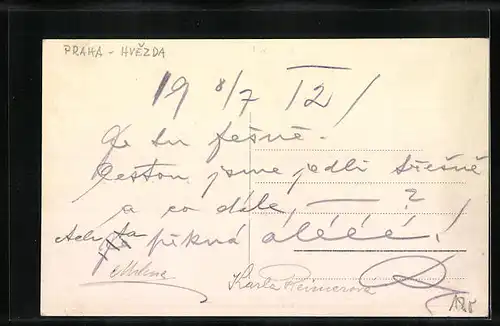 PRAHA - HVĚZDA
19 8/7 12!
Je tu fešně.
Cestou jsme jedli třešně
a co dále, — ?
Ach ta pěkná áléée!
Milena
Karla Reimerova